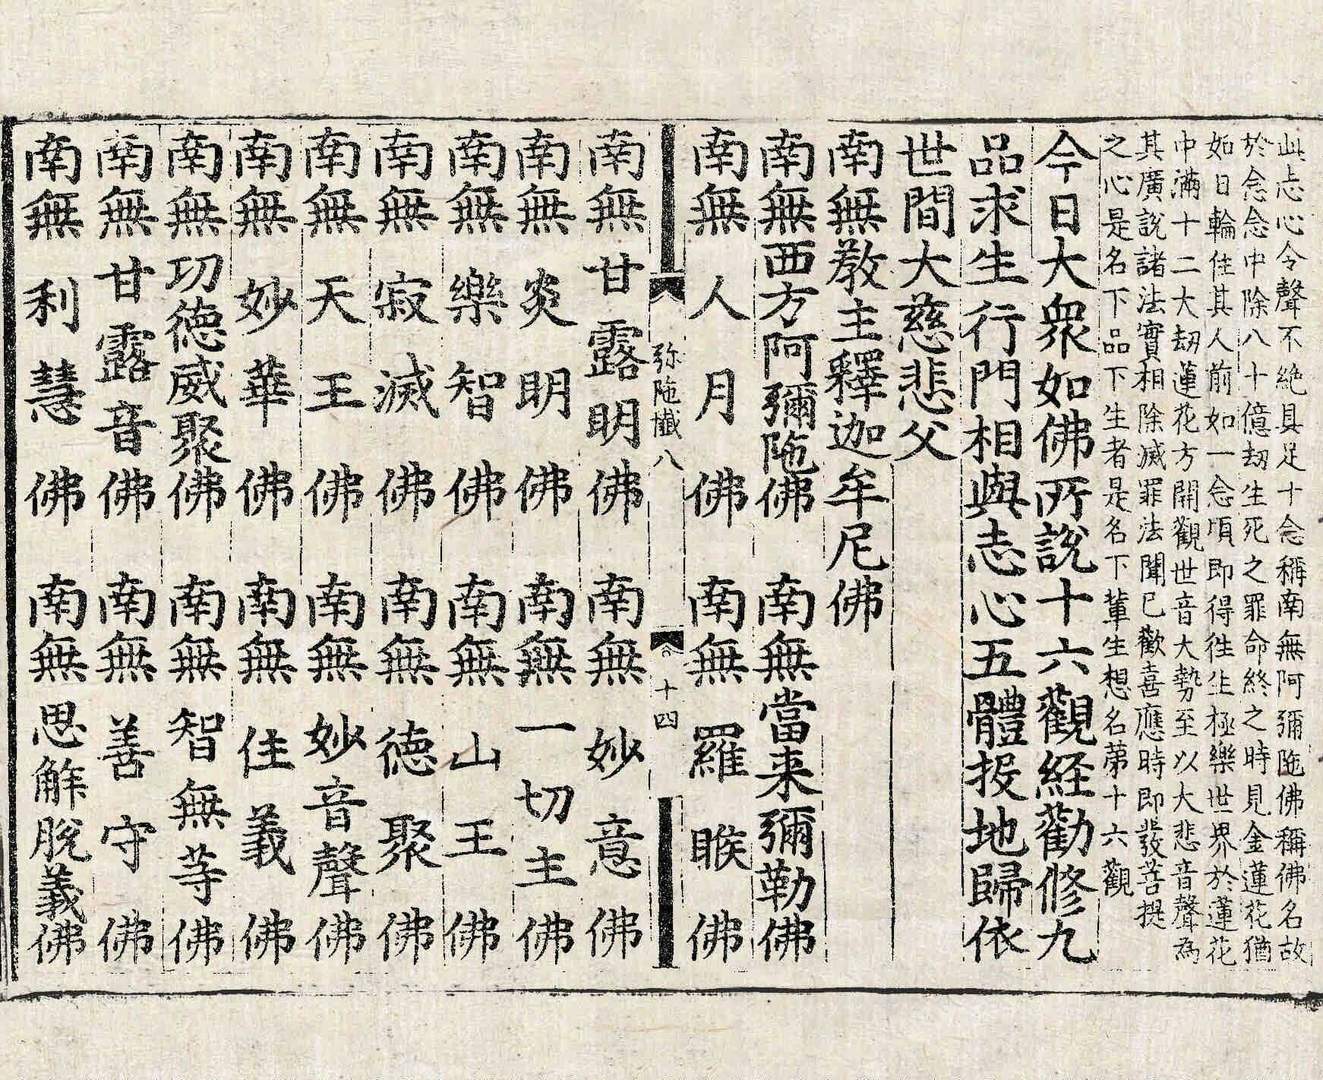 此志心令聲不絶具足十念稱南無阿彌陁佛稱佛名故
於念念中除八十億劫生死之罪命終之時見金蓮花猶
如日輪住其人前如一念頃即得往生極樂世界於蓮花
中滿十二大劫蓮花方開觀世音大勢至以大悲音聲為
其廣說諸法實相除滅罪法聞已歡喜應時即發菩提
之心是名下品下生者是名下輩生想名第十六觀
今日大衆如佛所說十六觀経勸修九
品求生行門相與志心五體投地歸依
世間大慈悲父
南無教主釋迦牟尼佛
南無西方阿彌陁佛 南無當来彌勒佛
南無人月佛 南無羅睺佛
弥陁懺八 十四
南無甘露明佛 南無妙意佛
南無炎明佛 南無一切主佛
南無樂智佛 南無山王佛
南無寂滅佛 南無德聚佛
南無天王佛 南無妙音聲佛
南無妙華佛 南無住義佛
南無功德威聚佛 南無智無等佛
南無甘露音佛 南無善守佛
南無利慧佛 南無思解脫義佛